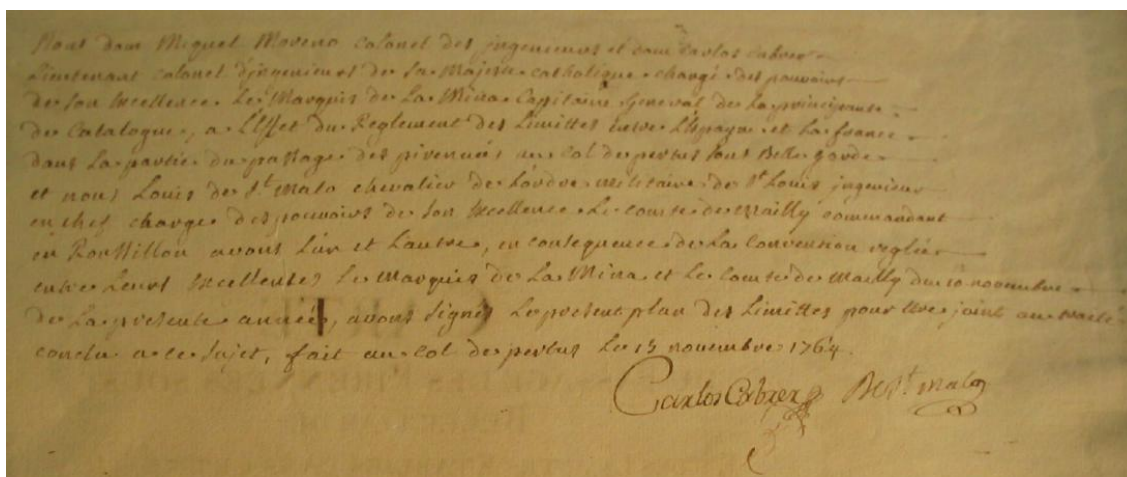 Nous dom Miguel Moreno colonel des jngenieurs et dom Carlos Cabrer
Lieutenant colonel d'jngenieurs de sa Majesté catholique chargé des pouvoirs
de son Excellence Le Marquis de La Mina Capitaine General de La principauté
de Catalogne, a L'Effet du Reglement des Limittes entre L'Espagne et La france
dans La partie du passage des pirennées au col de pertus sous Bellegarde
et nous Louis de St. Malo chevalier de L'ordre militaire de St Louis jngenieur
en chef chargé des pouvoirs de son Excellence Le comte de Mailly commandant
en Roussillon avons L'un et L'autre, en consequence de La Convention reglée
entre Leurs Excellences Le Marquis de La Mina et Le comte de Mailly du novembre
de La presente année, avons signés Le present plan des Limittes pour etre joint au traité
conclu a ce sujet, fait au col de pertus Le novembre 1764.
Carlos Cabrer De St. malo